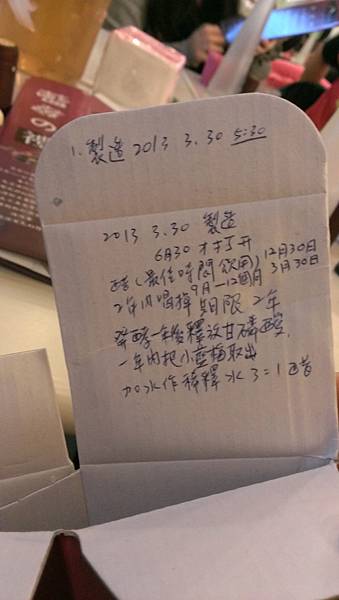 1. 製造 2013 3.30 5:30
2013 3.30 製造
6月30 才打开
醋(最佳時間飲用) 12月30日
9月—12個月 3月30日
2年內喝掉 期限 2年
發酵一年後釋放甘磷酸.
一年內把小藍梅取出
加水作稀釋 水3=1醋